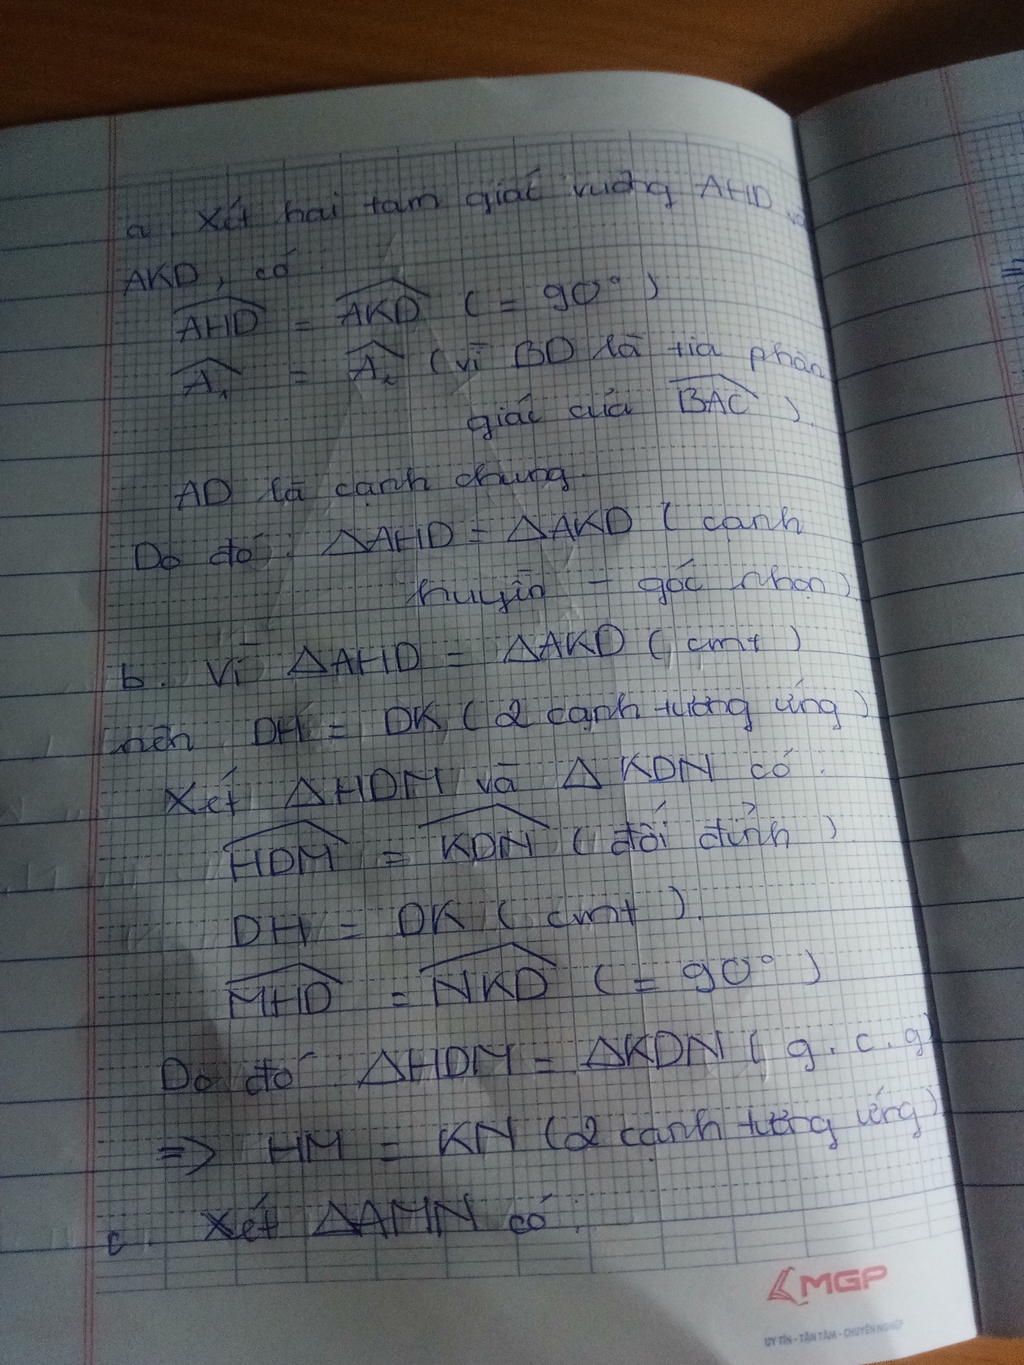 a. Xét hai tam giác vuông AHD và
AKD, có:
AHD = AKD ( = 90° )
A₁ = A₂ ( vì BD là tia phân
giác của BAC ).
AD là cạnh chung.
Do đó: ΔAHD = ΔAKD ( cạnh
huyền - góc nhọn )
b. Vì ΔAHD = ΔAKD ( cmt )
nên DH = DK ( 2 cạnh tương ứng )
Xét ΔHDM và ΔKDN có:
HDM = KDN ( đối đỉnh )
DH = DK ( cmt ).
MHD = NKD ( = 90° )
Do đó: ΔHDM = ΔKDN ( g.c.g )
=> HM = KN ( 2 cạnh tương ứng )
c. Xét ΔAMN có:
MGP
UY TÍN - TẬN TÂM - CHUYÊN NGHIỆP
=>